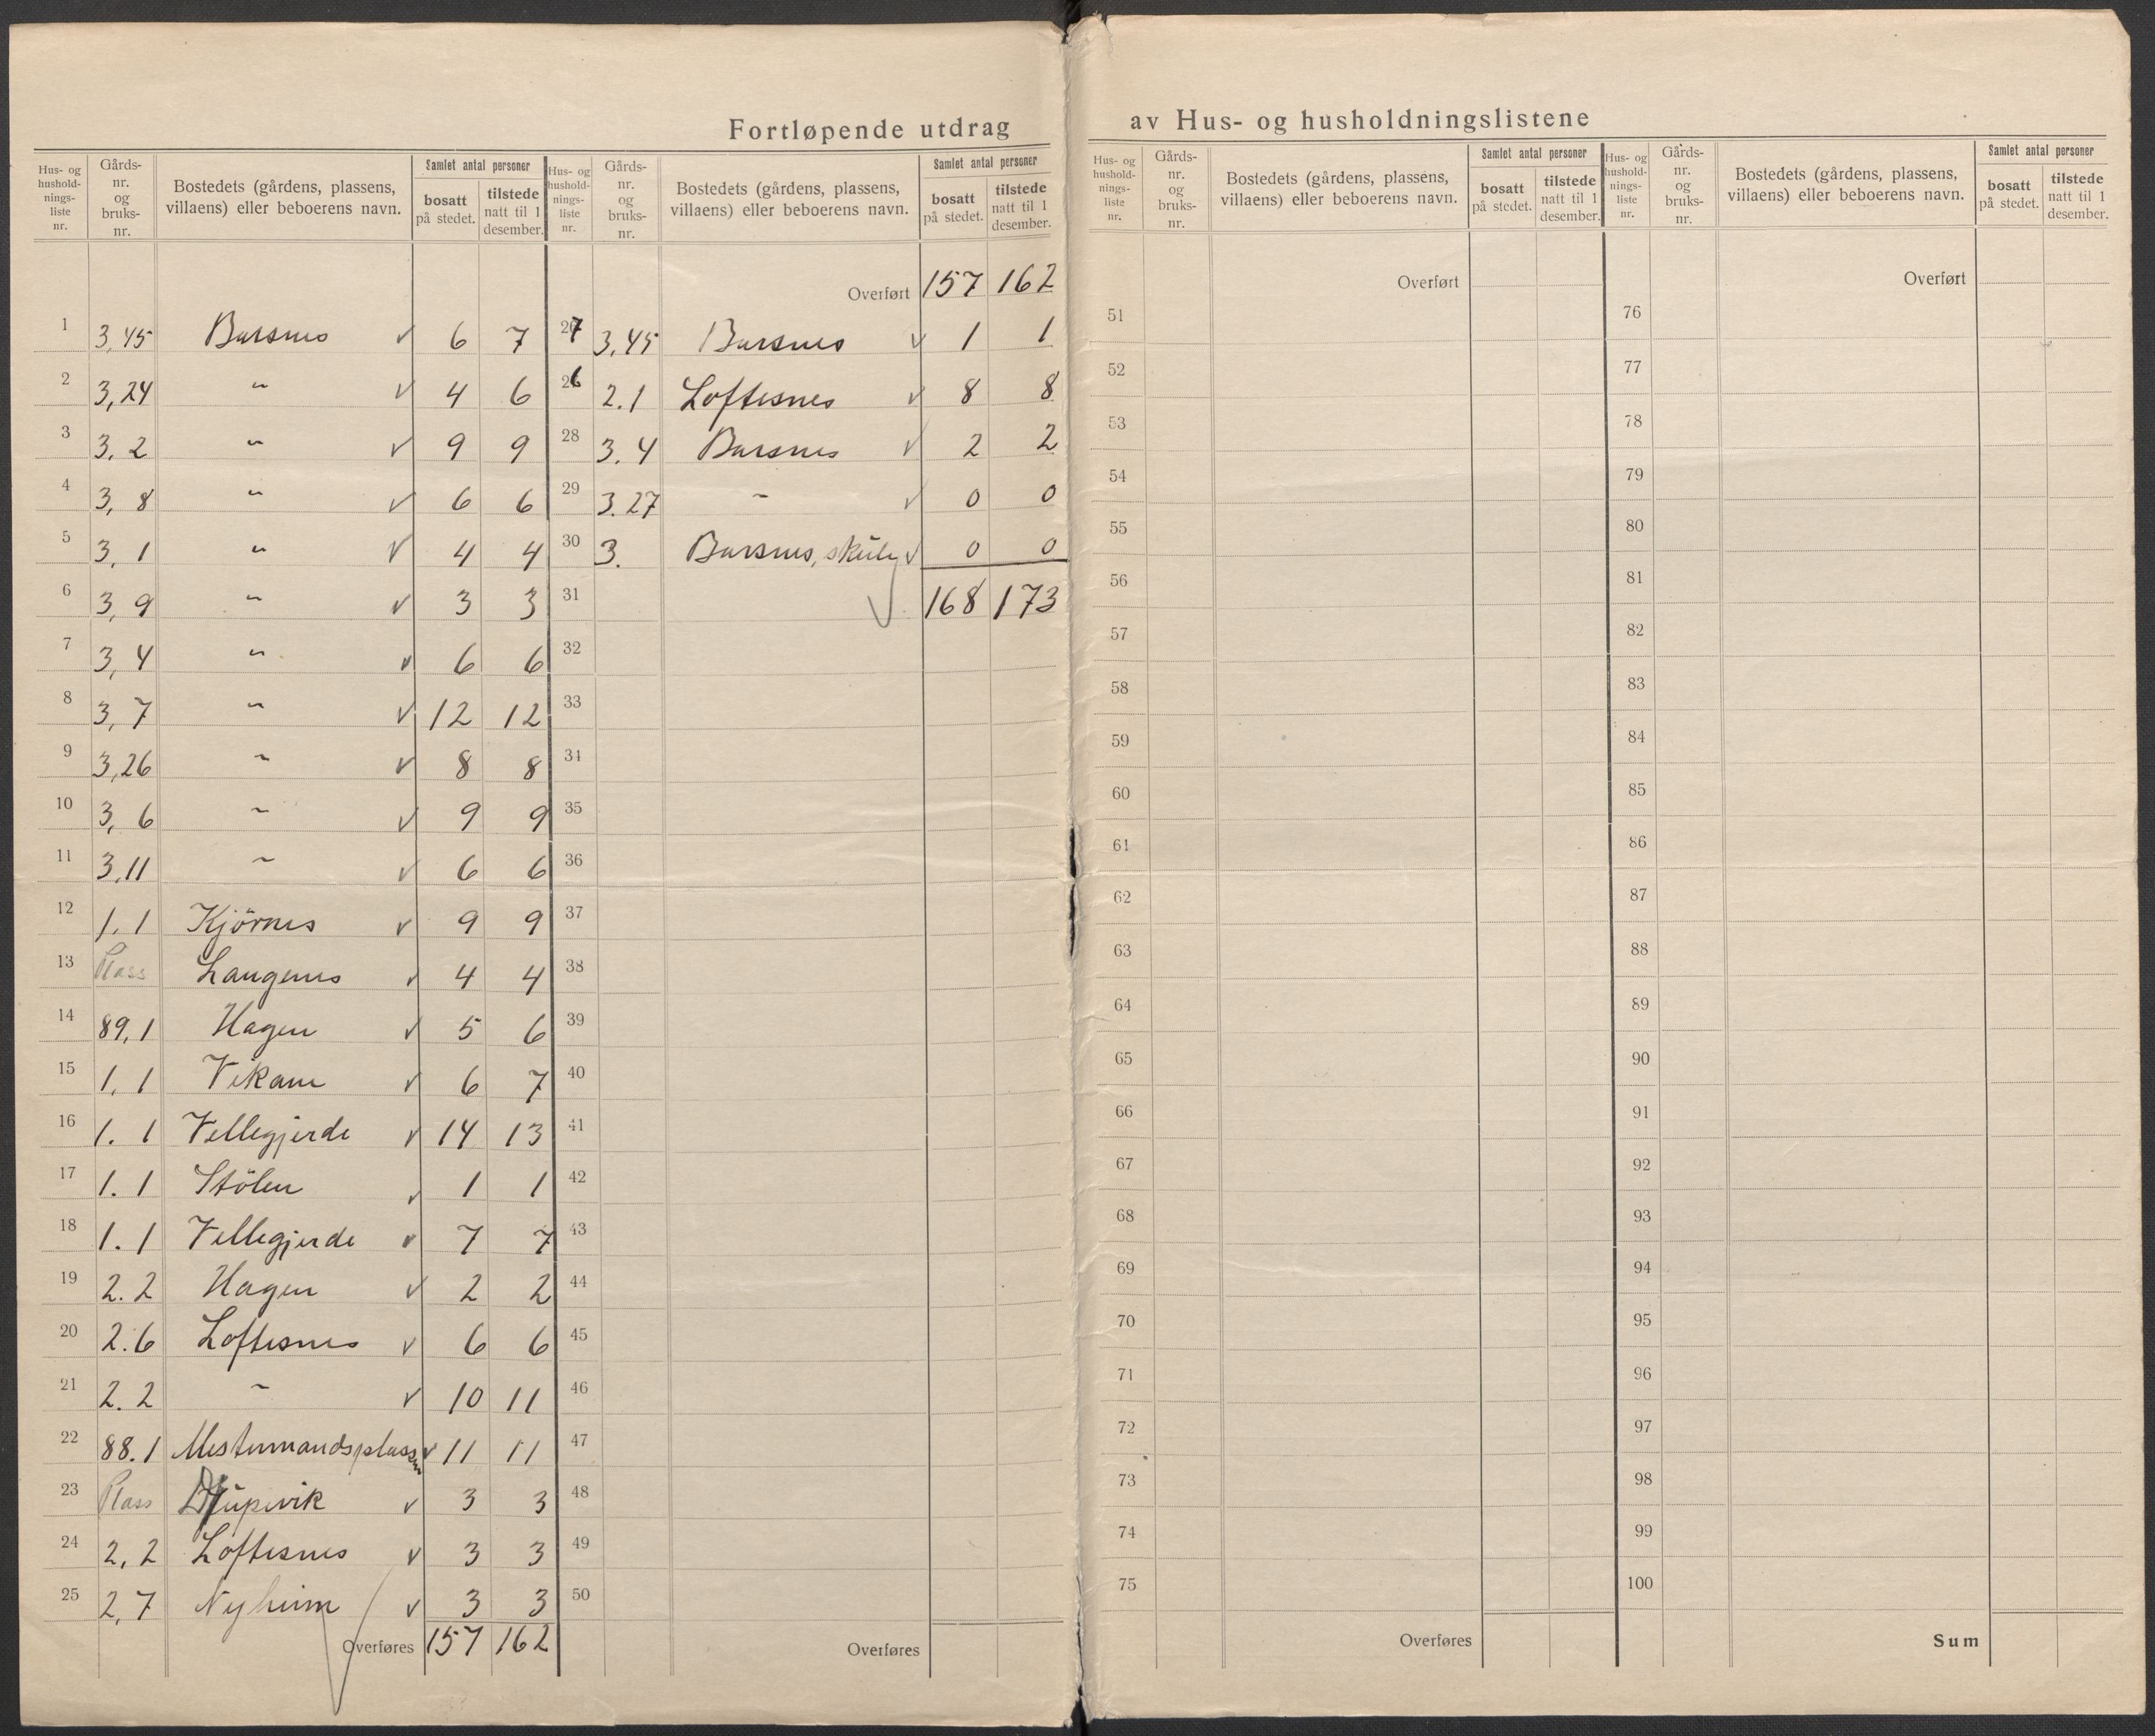 Fortløpende utdrag av Hus- og husholdningslistene
Hus- og hushold-nings-liste nr. Gårds-nr. og bruks-nr. Bostedets (gårdens, plassens, villaens) eller beboerens navn. Samlet antal personer bosatt på stedet. tilstede natt til 1 desember.
1 3,45 Barsnes v 6 7
2 3,24 " v 4 6
3 3,2 " v 9 9
4 3,8 " v 6 6
5 3,1 " v 4 4
6 3,9 " v 3 3
7 3,4 " v 6 6
8 3,7 " v 12 12
9 3,26 " v 8 8
10 3,6 " v 9 9
11 3,11 " v 6 6
12 1.1 Kjörnes v 9 9
13 Plass Langenes v 4 4
14 89,1 Hagen v 5 6
15 1,1 Vikane v 6 7
16 1.1 Vellegjerde v 14 13
17 1.1 Stölen v 1 1
18 1.1 Vellegjerde v 7 7
19 2.2 Hagen v 2 2
20 2.6 Loftesnes v 6 6
21 2.2 " v 10 11
22 88.1 Mestermandsplassen v 11 11
23 Plass Djupevik v 3 3
24 2,2 Loftesnes v 3 3
25 2,7 Nyheim v 3 3
Overføres 157 162
Hus- og hushold-nings-liste nr. Gårds-nr. og bruks-nr. Bostedets (gårdens, plassens, villaens) eller beboerens navn. Samlet antal personer bosatt på stedet. tilstede natt til 1 desember.
Overført 157 162
27 3,45 Barsnes v 1 1
26 2.1 Loftesnes v 8 8
28 3.4 Barsnes v 2 2
29 3.27 " v 0 0
30 3. Barsnes, skule v 0 0
31 168 173
32
33
34
35
36
37
38
39
40
41
42
43
44
45
46
47
48
49
50
Overføres
Hus- og hushold-nings-liste nr. Gårds-nr. og bruks-nr. Bostedets (gårdens, plassens, villaens) eller beboerens navn. Samlet antal personer bosatt på stedet. tilstede natt til 1 desember.
Overført
51
52
53
54
55
56
57
58
59
60
61
62
63
64
65
66
67
68
69
70
71
72
73
74
75
Overføres
Hus- og hushold-nings-liste nr. Gårds-nr. og bruks-nr. Bostedets (gårdens, plassens, villaens) eller beboerens navn. Samlet antal personer bosatt på stedet. tilstede natt til 1 desember.
Overført
76
77
78
79
80
81
82
83
84
85
86
87
88
89
90
91
92
93
94
95
96
97
98
99
100
Sum